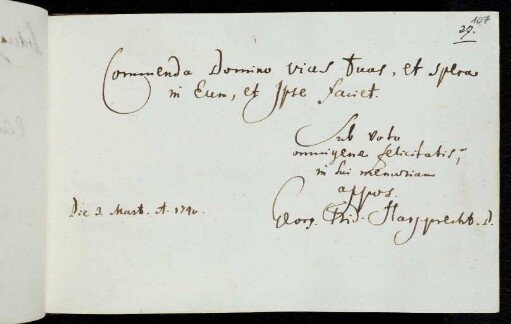 147
27.
Commenda Domino vias Tuas, et spera
in Eum, et Ipse faciet.
Sub voto
omnigenæ felicitatis,
in sui memoriam
appos.
Die 3 Mart. A. 1740.
Georg. Frid. Harpprecht. D.